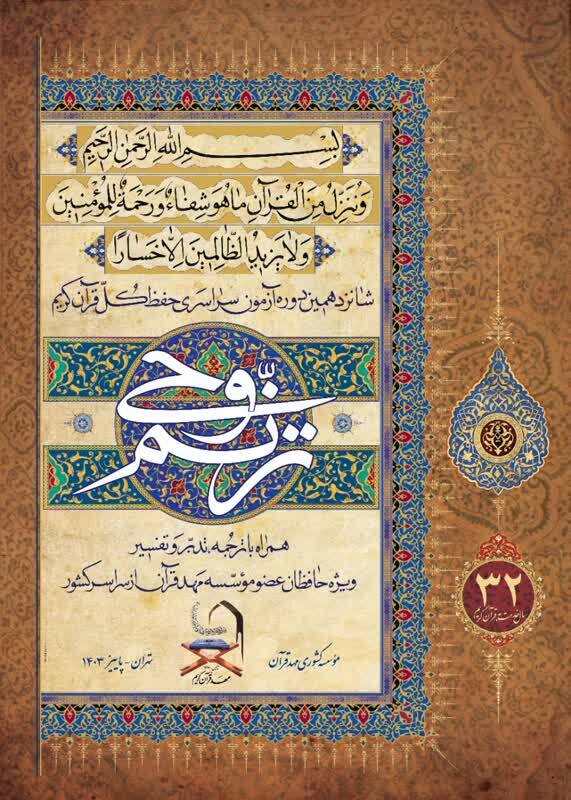 بِسْمِ اللهِ الرَّحْمنِ الرَّحیمِ
وَنُنَزِّلُ مِنَ الْقُرْآنِ ما هُوَ شِفاءٌ وَرَحْمَةٌ لِلْمُؤْمِنینَ
وَلا یَزیدُ الظّالِمینَ اِلّا خَسارًا
شانزدهمین دوره آزمون سراسری حفظ کلّ قرآن کریم
ترنّم وحی
همراه با ترجمه، تدبّر و تفسیر
ویژه حافظان عضو مؤسّسه مهد قرآن از سراسر کشور
مؤسسه کشوری مهد قرآن
مهد قرآن کریم
تهران - پاییز ۱۴۰۳
۳۲
سال خدمت به قرآن کریم